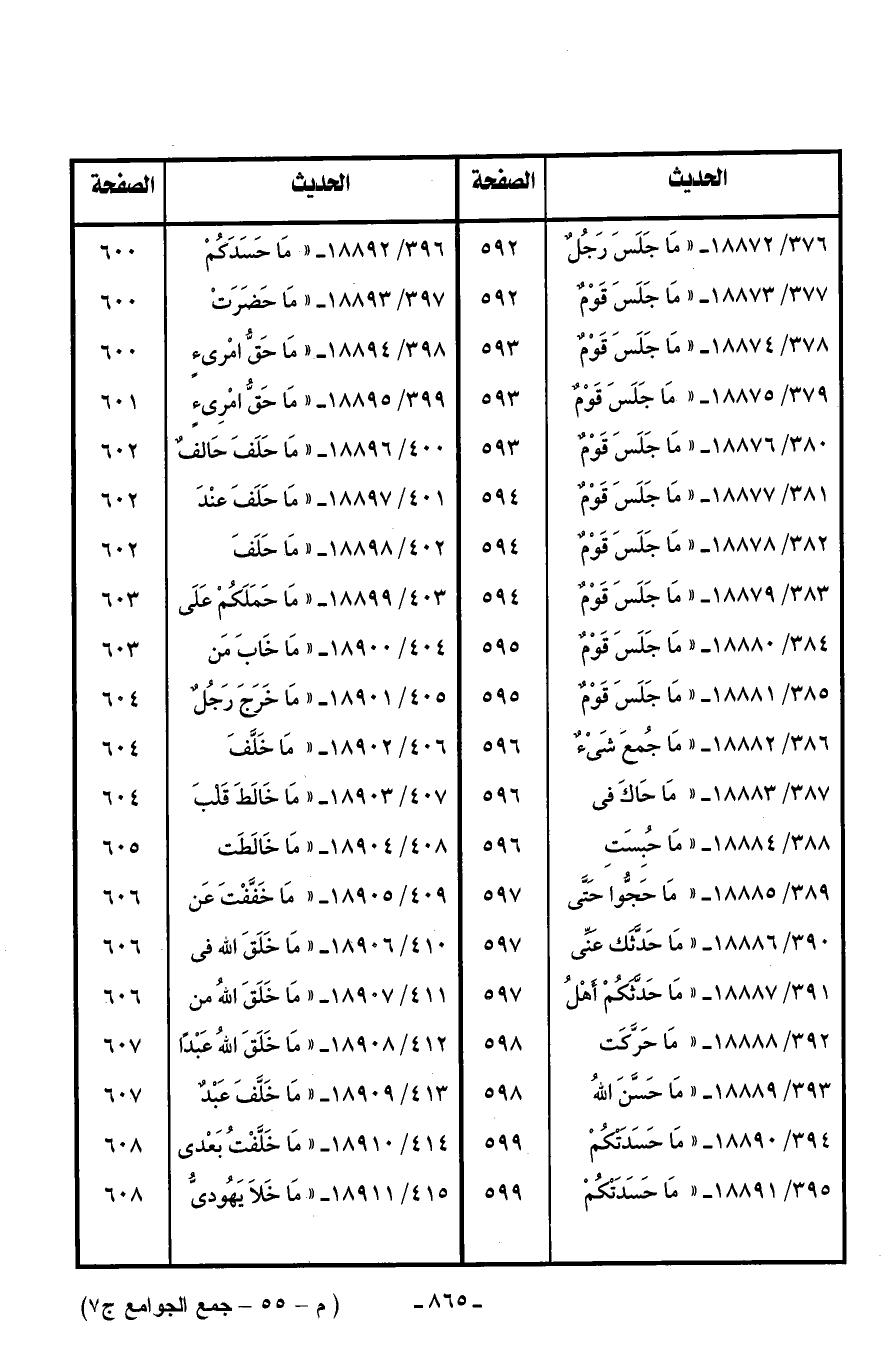 الحديث الصفحة الحديث الصفحة
٣٧٦/ ١٨٨٧٢ـ « مَا جَلَسَ رَجُلٌ ٥٩٢ ٣٩٦/ ١٨٨٩٢ـ « مَا حَسَدَكُمْ ٦٠٠
٣٧٧/ ١٨٨٧٣ـ « مَا جَلَسَ قَوْمٌ ٥٩٢ ٣٩٧/ ١٨٨٩٣ـ « مَا حَضَرَتْ ٦٠٠
٣٧٨/ ١٨٨٧٤ـ « مَا جَلَسَ قَوْمٌ ٥٩٣ ٣٩٨/ ١٨٨٩٤ـ « مَا حَقُّ امْرِىءٍ ٦٠٠
٣٧٩/ ١٨٨٧٥ـ « مَا جَلَسَ قَوْمٌ ٥٩٣ ٣٩٩/ ١٨٨٩٥ـ « مَا حَقُّ امْرِىءٍ ٦٠١
٣٨٠/ ١٨٨٧٦ـ « مَا جَلَسَ قَوْمٌ ٥٩٣ ٤٠٠/ ١٨٨٩٦ـ « مَا حَلَفَ حَالفٌ ٦٠٢
٣٨١/ ١٨٨٧٧ـ « مَا جَلَسَ قَوْمٌ ٥٩٤ ٤٠١/ ١٨٨٩٧ـ « مَا حَلَفَ عنْدَ ٦٠٢
٣٨٢/ ١٨٨٧٨ـ « مَا جَلَسَ قَوْمٌ ٥٩٤ ٤٠٢/ ١٨٨٩٨ـ « مَا حَلَفَ ٦٠٢
٣٨٣/ ١٨٨٧٩ـ « مَا جَلَسَ قَوْمٌ ٥٩٤ ٤٠٣/ ١٨٨٩٩ـ « مَا حَمَلَكُمْ عَلَى ٦٠٣
٣٨٤/ ١٨٨٨٠ـ « مَا جَلَسَ قَوْمٌ ٥٩٥ ٤٠٤/ ١٨٩٠٠ـ « مَا خَابَ مَن ٦٠٣
٣٨٥/ ١٨٨٨١ـ « مَا جَلَسَ قَوْمٌ ٥٩٥ ٤٠٥/ ١٨٩٠١ـ « مَا خَرَجَ رَجُلٌ ٦٠٤
٣٨٦/ ١٨٨٨٢ـ « مَا جُمعَ شَىْءٌ ٥٩٦ ٤٠٦/ ١٨٩٠٢ـ « مَا خَلَّفَ ٦٠٤
٣٨٧/ ١٨٨٨٣ـ « مَا حَاكَ فى ٥٩٦ ٤٠٧/ ١٨٩٠٣ـ « مَا خَالَطَ قَلْبَ ٦٠٤
٣٨٨/ ١٨٨٨٤ـ « مَا حُبِسَتِ ٥٩٦ ٤٠٨/ ١٨٩٠٤ـ « مَا خَالَطَت ٦٠٥
٣٨٩/ ١٨٨٨٥ـ « مَا حَجُّوا حَتَّى ٥٩٧ ٤٠٩/ ١٨٩٠٥ـ « مَا خَفَّفْتَ عَن ٦٠٦
٣٩٠/ ١٨٨٨٦ـ « مَا حَدَّثَك عَنِّى ٥٩٧ ٤١٠/ ١٨٩٠٦ـ « مَا خَلَقَ الله فى ٦٠٦
٣٩١/ ١٨٨٨٧ـ « مَا حَدَّثَكُمْ أَهْلُ ٥٩٧ ٤١١/ ١٨٩٠٧ـ « مَا خَلَقَ اللهُ من ٦٠٦
٣٩٢/ ١٨٨٨٨ـ « مَا حَرَّكَت ٥٩٨ ٤١٢/ ١٨٩٠٨ـ « مَا خَلَقَ اللهُ عَبْدًا ٦٠٧
٣٩٣/ ١٨٨٨٩ـ « مَا حَسَّنَ اللهُ ٥٩٨ ٤١٣/ ١٨٩٠٩ـ « مَا خَلَّفَ عَبْدٌ ٦٠٧
٣٩٤/ ١٨٨٩٠ـ « مَا حَسَدَتْكُمْ ٥٩٩ ٤١٤/ ١٨٩١٠ـ « مَا خَلَّفْتُ بَعْدى ٦٠٨
٣٩٥/ ١٨٨٩١ـ « مَا حَسَدَتْكُمْ ٥٩٩ ٤١٥/ ١٨٩١١ـ « مَا خَلاَ يَهُودىٌّ ٦٠٨
ـ ٨٦٥ ـ ( م – ٥٥ – جمع الجوامع ج٧)